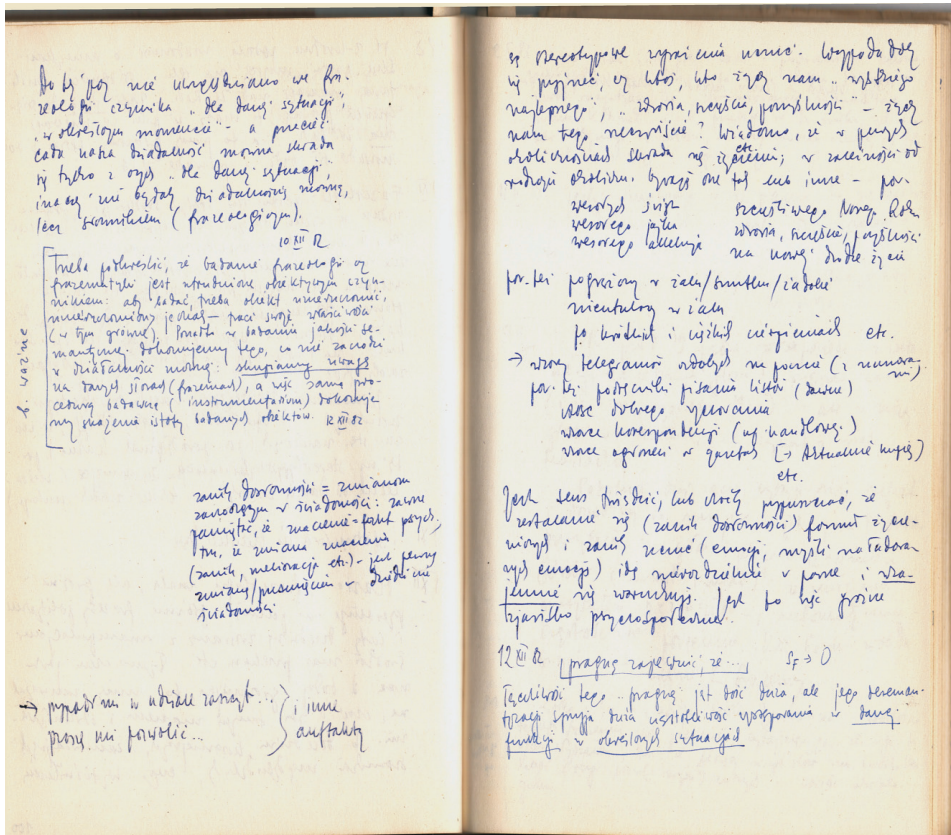 Do tej pory nie uwzględniano we fra-
zeologii czynnika „dla danej sytuacji”,
„w określonym momencie” – a przecież
cała nasza działalność mowna składa
się tylko z owych „dla danej sytuacji”,
inaczej nie byłaby działalnością mowną,
lecz słownikiem (frazeologicznym).
10 XII 82
Trzeba podkreślić, że badanie frazeologii czy
frazematyki jest utrudnione obiektywnym czyn-
nikiem: aby badać, trzeba obiekt unieruchomić,
unieruchomiony jednak – traci swoje właściwości
(w tym główne). Ponadto w badaniu jakości se-
mantycznej dokonujemy tego, co nie zachodzi
w działalności mownej: skupiamy uwagę
na danych słowach (frazemach), a więc samą pro-
cedurą badawczą (instrumentarium) dokonuje-
my skażenia istoty badanych obiektów. 12 XII 82
b. ważne
zanik dosłowności = zmianom
zachodzącym w świadomości: zawsze
pamiętać, że znaczenie = fakt psych.,
tzn. że zmiana znaczenia
(zanik, melioracja etc.) – jest pewną
zmianą/przesunięciem w dziedzinie
świadomości
→ przypadł mi w udziale zaszczyt...
proszę mi pozwolić...
i inne
autfakty
są stereotypowe wyrażenia uczuć. Wypada dość
się przyjrzeć, czy ktoś, kto życzy nam „wszystkiego
najlepszego”, „zdrowia, szczęścia, pomyślności” – życzy
nam tego rzeczywiście? Wiadomo, że w pewnych
okolicznościach składa się życzenia etc.; w zależności od
rodzaju okoliczn. bywają one takie lub inne – por.
wesołych świąt szczęśliwego Nowego Roku
wesołego jajka zdrowia, szczęścia, pomyślności
wesołego alleluja na nowej drodze życia
por. też pogrążony w żalu/smutku/żałobie
nieutulony w żalu
po krótkich i ciężkich cierpieniach etc.
→ wzory telegramów ozdobnych na poczcie (z numera-
mi)
por. też podręczniki pisania listów (dawne)
wzorce korespondencji (np. handlowej)
wzorce ogłoszeń w gazetach [→ Aktualnie kupię]
etc.
Jest sens twierdzić, lub choćby przypuszczać, że
ustalanie się (zanik dosłowności) formuł życze-
niowych i zanik uczuć (emocji, myśli naładowa-
nych emocją) idą nierozdzielnie w parze i wza-
jemnie się warunkują. Jest to więc groźne
zjawisko psychospołeczne.
12 XII 82 pragnę zapewnić, że... S_F → 0
Łączliwość tego pragnę jest dość duża, ale jego deseman-
tyzacji sprzyja duża częstotliwość występowania w danej
funkcji w określonych sytuacjach